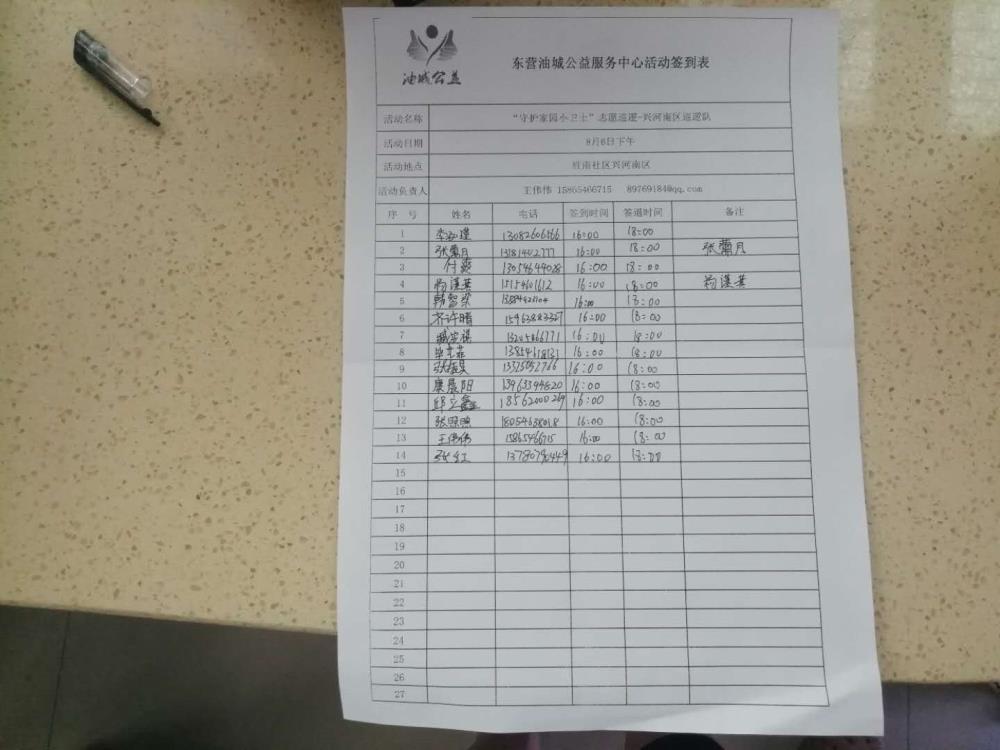 油城公益
东营油城公益服务中心活动签到表
活动名称 “守护家园小卫士”志愿巡逻-兴河南区巡逻队
活动日期 8月6日下午
活动地点 胜南社区兴河南区
活动负责人 王伟伟 15865466715 89769184@qq.com
序号 姓名 电话 签到时间 签退时间 备注
1 13082606566 16:00 18:00
2 张蕾月 13781402777 16:00 18:00 张蕾月
3 付 13054644028 16:00 18:00
4 杨谨英 15154601612 16:00 18:00 杨谨英
5 16:00 18:00
6 齐许晴 15963883327 16:00 18:00
7 16:00 18:00
8 16:00 18:00
9 13325052766 16:00 18:00
10 康晨阳 13963394820 16:00 18:00
11 邱立鑫 18562000269 16:00 18:00
12 18054638018 16:00 18:00
13 王伟伟 15865466715 16:00 18:00
14 张红 13780790449 16:00 18:00
15
16
17
18
19
20
21
22
23
24
25
26
27